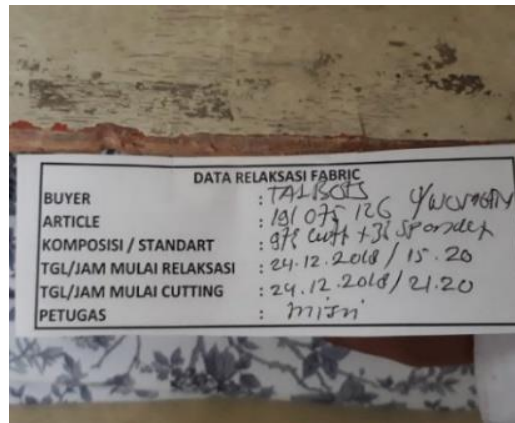 DATA RELAKSASI FABRIC
BUYER : TALBOTS
ARTICLE : 191 075 126
KOMPOSISI / STANDART : 97% +3% Spandex
TGL/JAM MULAI RELAKSASI : 24.12.2018 / 15.20
TGL/JAM MULAI CUTTING : 24.12.2018 / 21.20
PETUGAS : misni